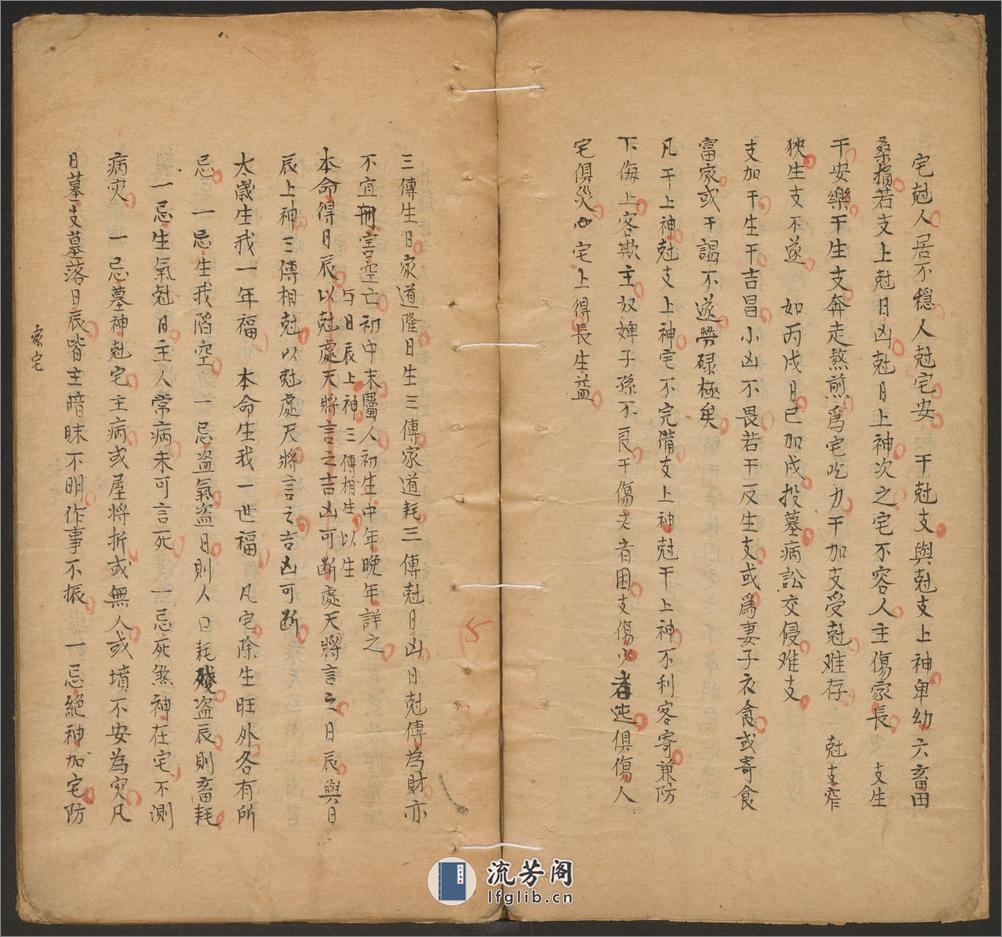 宅尅人居不穩人尅宅安 干尅支與尅支上神卑幼六畜田
桑損若支上尅日凶尅日上神次之宅不容人主傷家長 支生
干安樂干生支奔走熬煎為宅吃力干加支受尅难存 尅支窄
狹生支不遂 如丙戌日巳加戌投墓病訟交侵难支
支加干生干吉昌小凶不畏若干反生支或為妻子衣食或寄食
富家或干謁不遂勞碌極矣
凡干上神尅支上神宅不完備支上神尅干上神不利客寄兼防
下侮上客欺主奴婢子孫不良干傷老者困支傷少者迍俱傷人
宅俱災 宅上得長生益
三傳生日家道隆日生三傳家道耗三傳尅日凶日尅傳為財亦
不宜刑害空亡初中末屬人初生中年晚年詳之
与日辰上神三傳相生以生
本命得日辰以尅處天將言之吉凶可断處天將言之日辰與日
辰上神三傳相尅以尅處天將言之吉凶可断
太歲生我一年福 本命生我一世福 凡宅除生旺外各有所
忌 一忌生我陷空 一忌盜氣盜日則人口耗殘盜辰則畜耗
一忌生氣尅日主人常病未可言死 一忌死煞神在宅不測
病灾 一忌墓神尅宅主病或屋將折或無人或墳不安為灾凡
日墓支墓落日辰皆主暗昧不明作事不振 一忌絕神加宅防
家宅
5
流芳阁
lfglib.cn